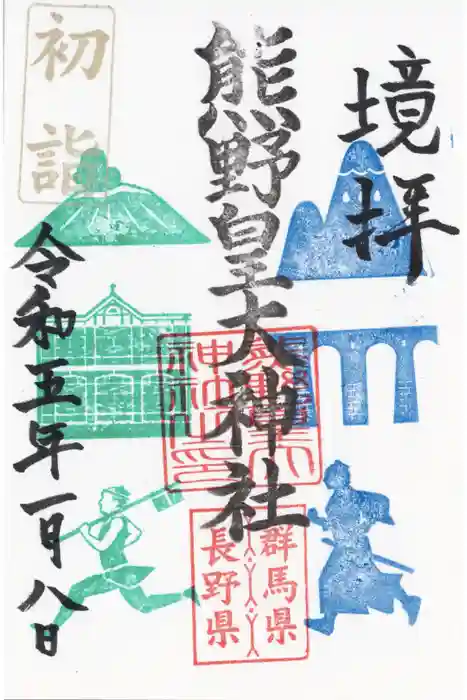 境拝
熊野皇大神社
初詣
令和五年一月八日
群馬県
長野県